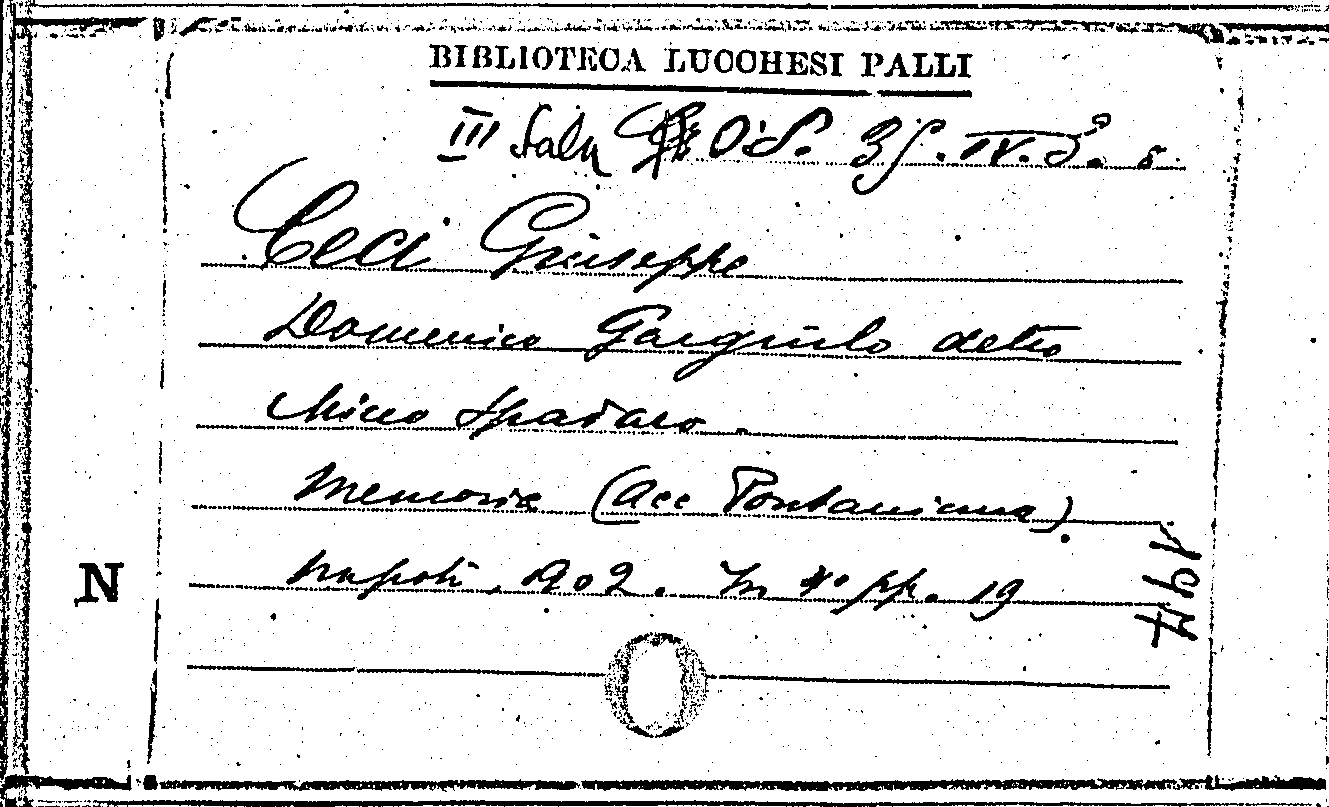 BIBLIOTECA LUCCHESI PALLI
III Sala
Ceci Giuseppe
Domenico Gargiulo detto
Micco Spadaro.
Memoria (Acc Pontaniana).
Napoli, 902. In 4° pp. 19
N